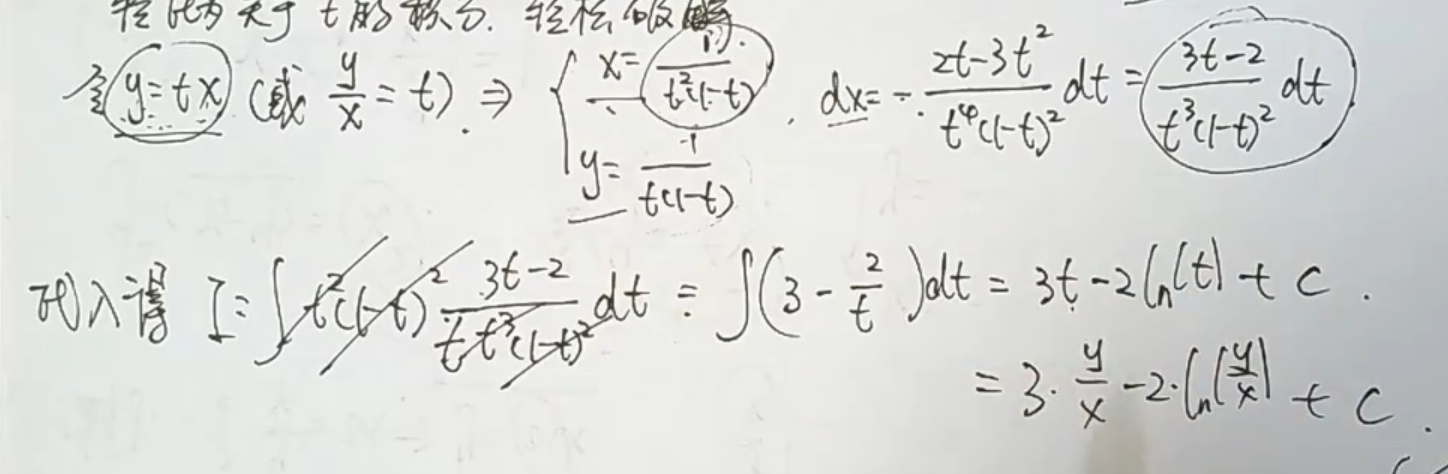 转化为关于 t 的积分. 轻松破解
令 y=tx (或 y/x = t). ⇒ { x = 1/(t²(1-t)), y = 1/(t(1-t)) . dx = - (2t-3t²)/(t⁴(1-t)²) dt = (3t-2)/(t³(1-t)²) dt
代入得 I = ∫ t²(1-t)² (3t-2)/(t·t³(1-t)²) dt = ∫(3 - 2/t)dt = 3t - 2ln|t| + C .
= 3· y/x - 2·ln|y/x| + C .